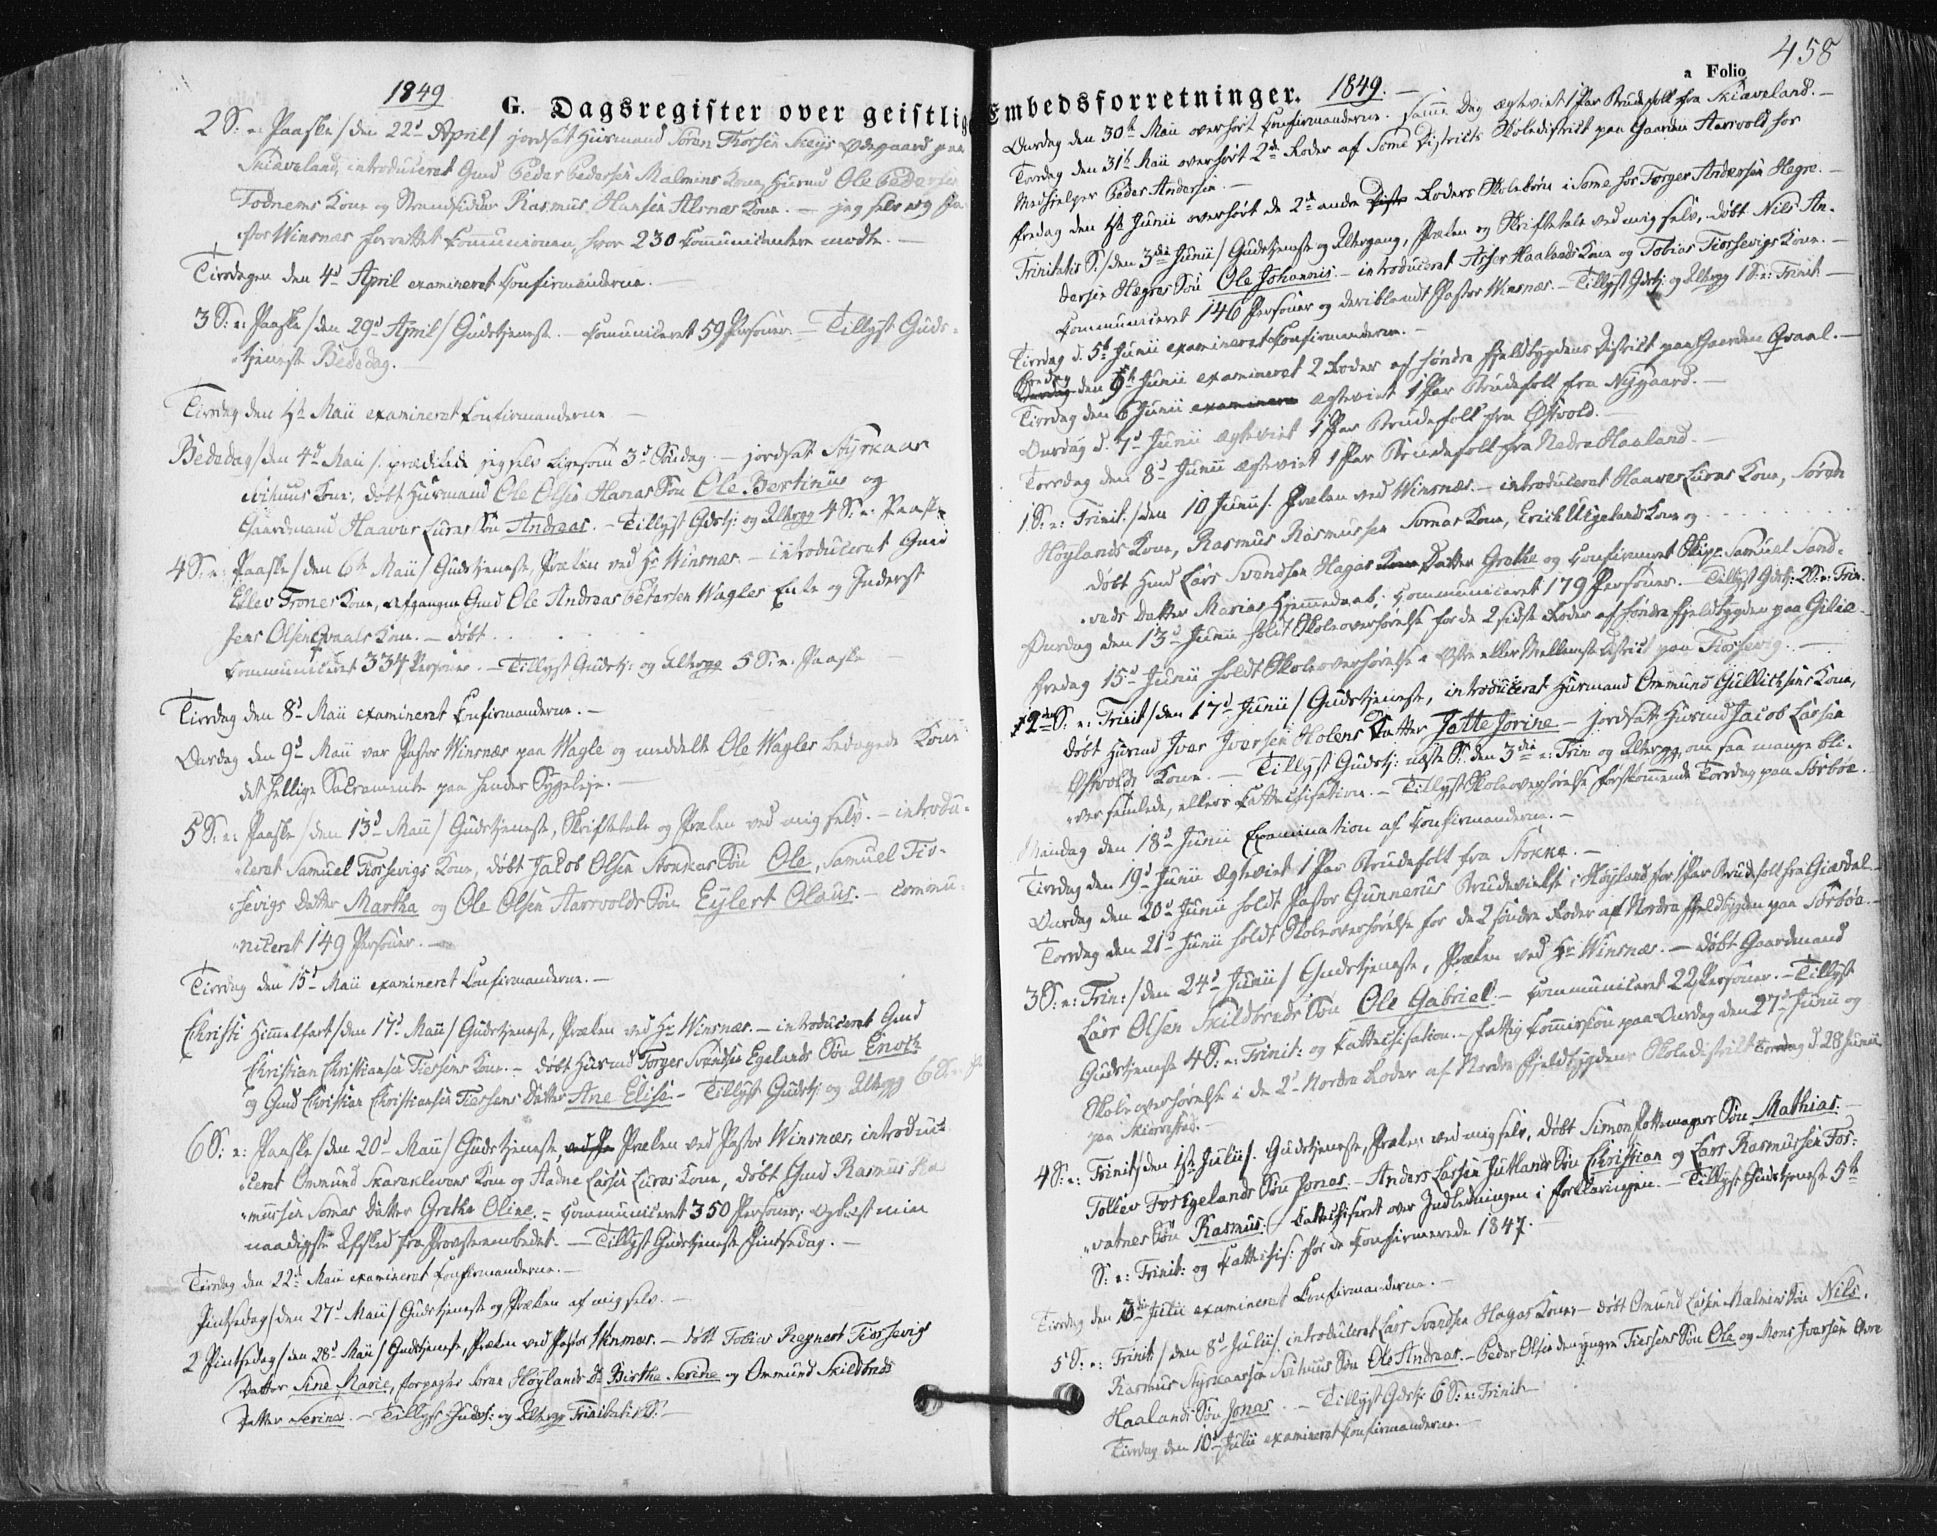 1849
G. Dagsregister over geistlig
2 S: e: Paaske / den 22d April / jordsat Huusmand Sören Thorsen Skeys Ødegaard paa
Skiæveland, introduceret Gmd Peder Pedersen Malmins Kone, Huusmd Ole Pedersen
Todnems Kone og Strandsidder Rasmus Hansen Alsnæs Kone. — jeg selv og Pa-
stor Winsnæs forrettet Communionen, hvor 230 Communicantere mødte. —
Tirsdagen den 4d April examineret Confirmanderne. —
3 S: e: Paaske / den 29d April / Gudstjeneste. — Communiceret 59 Personer. — Tillyst Guds-
tjeneste Bededag. —
Tirsdag den 1ste Maii examineret Confirmanderne —
Bededag / den 4d Maii /. prædikede jeg selv ligesom 3d Søndag. — jordsat Styrkaar
Kone, døbt Huusmand Ole Olsen Hanas Søn Ole Bertinius og
Gaardmand Haavar Luras Søn Andreas. — Tillyst Gdstj: og Altergg 4 S: e: Paaske
4 S: e: Paaske / den 6te Maii / Gudstjeneste, Præken ved Hr Winsnæs. — introduceret Gmd
Ellev Trones Kone, Afgangne Gmd Ole Andreas Petersen Wagles Enke og Inderst
Jens Olsen Qvaals Kone. — døbt . . . .
Communiceret 334 Personer. — Tillyst Gudstj: og Altergg 5 S: e. Paaske —
Tirsdag den 8d Maii examineret Confirmanderne. —
Onsdag den 9d Maii var Pastor Winsnæs paa Wagle og meddelte Ole Wagles bedagede Kone
det hellige Sacramente paa hendes Sygeleje. —
5 S: e: Paaske / den 13d Maii / Gudstjeneste, Skriftetale og Præken ved mig selv. — introdu-
ceret Samuel Tiorsevigs Kone, døbt Jakob Olsen Stokkas Søn Ole, Samuel Tior-
sevigs Datter Martha og Ole Olsen Aarvolds Søn Eylert Olaus. — Commu-
niceret 149 Personer. —
Tirsdag den 15d Maii examineret Confirmanderne. —
Christi Himmelfart / den 17d Maii / Gudstjeneste, Præken ved Hr Winsnæs. — introduceret Gmd
Christian Christiansen Tiessems Kone. — døbt Huusmd Torger Svendsen Egelands Søn Enoch
og Gmd Christian Christiansen Tiessems Datter Ane Elise. — Tillyst Gudstj: og Altergg 6 S: e: P
6 S: e: Paaske / den 20d Maii / Gudstjeneste, Præken ved Pastor Winsnæs, introdu-
ceret Ommund Skaraklevens Kone og Aadne Larsen Luras Kone, døbt Gmd Rasmus Ra-
smussen Somas Datter Grethe Oline. — Communiceret 350 Personer; Oplæst min
naadigste Afsked fra Provsteembedet. — Tillyst Gudstjeneste Pintsedag. —
Tirsdag den 22d Maii examineret Confirmanderne. —
Pintsedag / den 27d Maii / Gudstjeneste og Præken af mig selv. —
2 Pintsedag / den 28d Maii / Gudstjeneste, Præken ved Pastor Winsnæs. — døbt Tobias Reynert Tiossevigs
Datter Sine Marie, forpagter Søren Høylands Dr Birthe Serine og Ommund Skilbreds
Datter Serine. — Tillyst Gudstj: og Altergg Trinitatis S: —
Embedsforretninger. 1849. — a Folio 458
Onsdag den 30te Maii overhørt Confirmanderne. samme Dag ægteviet 1 Par Brudefolk fra Skiæveland. —
Torsdag den 31te Maii overhørt 2de Roder af Some Districts Skoledistrict paa Gaarden Aarvold hos
Medhjelper Peder Andersen. —
Fredag den 1ste Junii overhørt de 2de andre Roders Skolebørn i Some hos Torger Andersen Hegre. —
Trinitatis S: / den 3die Junii / Gudstjeneste og Altergang, Præken og Skriftetale ved mig selv, døbt Nils An-
dersen Hegres Søn Ole Johannis. — introduceret Asser Haalands Kone og Tobias Tiossevigs Kone. —
Communiceret 146 Personer og deriblandt Pastor Winsnæs. — Tillyst Gdstj: og Altergg 1 S: e: Trinit —
Tirsdag d. 5te Junii examineret Confirmanderne. —
Onsdag den Junii examineret 2 Roder af søndre Fjeldbygdens District paa Gaarden Qvaal. —
Tirsdag den 6 Junii ægteviet 1 Par Brudefolk fra Nygaard. —
Onsdag d. 7d Junii ægteviet 1 Par Brudefolk fra Østvold. —
Torsdag den 8d Junii ægteviet 1 Par Brudefolk fra Nedre Haaland. —
1 S: e: Trinit. / den 10 Junii /. Præken ved Winsnæs. — introduceret Haaver Luras Kone, Søren
Høylands Kone, Rasmus Rasmussen Somas Kone, Erick Utgelands Kone og . . . . . .
døbt Hmd Lars Svendsen Hagas Datter Grethe og Confirmeret Skipr Samuel Sand-
veds Datter Marias Hjemmedaab; Communiceret 179 Personer. — Tillyst Gdstj: 2 S: e: Trin.
Onsdag den 13d Junii holdt Skoleoverhørelse for de 2 sidste Roder af søndre Fjeldbygden paa Gilie —
Fredag 15d Junii holdt Skoleoverhørelse i Østre eller Mellemste District paa Tiossevig. —
2den S: e: Trinit / den 17d Junii / Gudstjeneste, introduceret Huusmand Ommund Gullichsens Kone,
døbt Huusmd Ivar Ivarsen Holens Datter Jette Jorine — jordsat Huusmd Jacob Larsen
Østvolds Kone. — Tillyst Gudstj: næste S: den 3die e: Trin og Altergg, om saa mange bli-
ver samlede, ellers Cattechisation. — Tillyst Skoleoverhørelse førstkommende Torsdag paa Sørbøe.
Mandag den 18d Junii Examination af Confirmanderne. —
Tirsdag den 19d Junii ægteviet 1 Par Brudefolk fra Stokke. —
Onsdag den 20d Junii holdt Pastor Gunnerus Brudevielse i Høyland for 1 Par Brudefolk fra Giesdal. —
Torsdag den 21d Junii holdt Skoleoverhørelse for de 2 søndre Roder af Nordre Fjeldbygden paa Sørbøe. —
3 S: e: Trin: / den 24d Junii / Gudstjeneste, Præken ved Hr Winsnæs. — døbt Gaardmand
Lars Olsen Skilbreds Søn Ole Gabriel. — Communiceret 22 Personer. — Tillyst
Gudstjeneste 4 S: e: Trinit: og Cattechisation. — Fattig Commission paa Onsdag den 27d Junii og
Skoleoverhørelse i de 2d Nordre Roder af Nordre Fjeldbygdens Skoledistrikt Torsdag d. 28 Junii
paa Skiørestad. —
4 S: e: Trinit / den 1ste Julii /. Gudstjeneste, Præken ved mig selv, døbt Simon Pottemagers Søn Mathias. —
Tollev Fosegelands Søn Jonas. — Anders Larsen Jutlands Søn Christian og Lars Rasmussen Fos-
vatnes Søn Rasmus. — Cattechiseret over Indledningen i Forklaringen. — Tillyst Gudstjeneste 5te
S: e: Trinit: og Cattechis: for de Confirmerede 1847. —
Tirsdag den 3die Julii examineret Confirmanderne. —
5 S: e: Trinit / den 8d Julii /. introduceret Lars Svendsen Hagas Kone, — døbt Omund Larsen Malmins Søn Nils.
Rasmus Styrkaarsen Søn Ole Andreas. — Peder Olsen den yngre Tiessems Søn Ole og Mons Iversen Øvre
Haalands Søn Jonas. — Tillyst Gdstj: 6 S: e: Trinit —
Tirsdag den 10d Julii examineret Confirmanderne. —